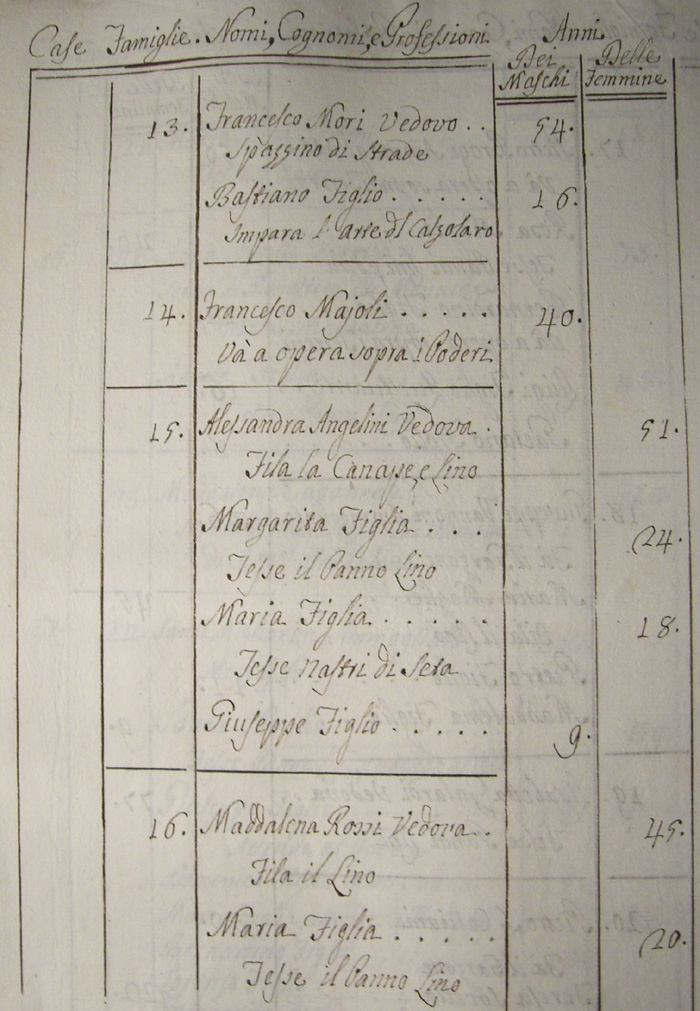 Case Famiglie. Nomi, Cognomi, e Professioni Anni
Dei Maschi Delle Femmine
13. Francesco Mori Vedovo . . 54.
Spazzino di Strade
Bastiano Figlio . . . . . 16.
Impara l'arte dl Calzolaro
14. Francesco Majoli . . . . . 40.
Và a opera sopra i Poderi
15. Alessandra Angelini Vedova . 51.
Fila la Canape, e Lino
Margarita Figlia . . . 24.
Tesse il Panno Lino
Maria Figlia . . . . . 18.
Tesse Nastri di Seta
Giuseppe Figlio . . . . . 9.
16. Maddalena Rossi Vedova . . 45.
Fila il Lino
Maria Figlia . . . . . 20.
Tesse il Panno Lino